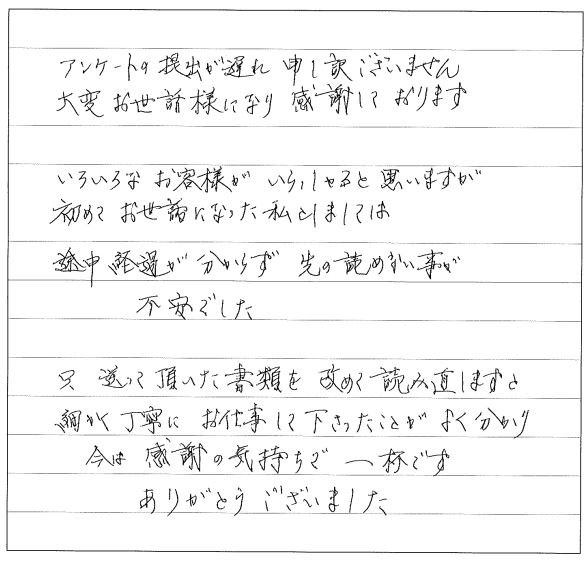 アンケートの提出が遅れ 申し訳ございません
大変お世話様になり 感謝しております
いろいろな お客様が いらっしゃると思いますが
初めて お世話になった私としましては
途中経過が 分からず 先の読めない事が
不安でした
只 送って頂いた書類を 改めて読み直しますと
細かく丁寧に お仕事して下さったことが よく分かり
今は 感謝の気持ちで 一杯です
ありがとうございました